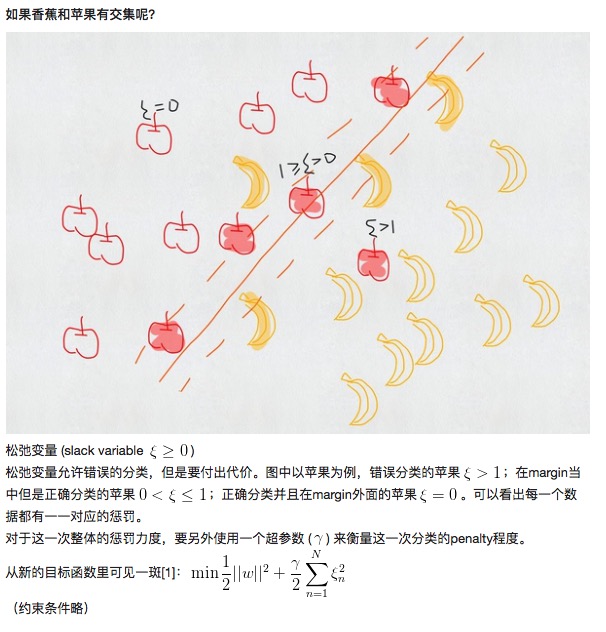 如果香蕉和苹果有交集呢?
ξ=0
1≥ξ>0
ξ>1
松弛变量 (slack variable ξ ≥ 0)
松弛变量允许错误的分类，但是要付出代价。图中以苹果为例，错误分类的苹果 ξ > 1；在margin当
中但是正确分类的苹果 0 < ξ ≤ 1；正确分类并且在margin外面的苹果 ξ = 0。可以看出每一个数
据都有一一对应的惩罚。
对于这一次整体的惩罚力度，要另外使用一个超参数 (γ) 来衡量这一次分类的penalty程度。
从新的目标函数里可见一斑[1]: min 1/2 ||w||² + γ/2 ∑_{n=1}^{N} ξ_n²
（约束条件略）